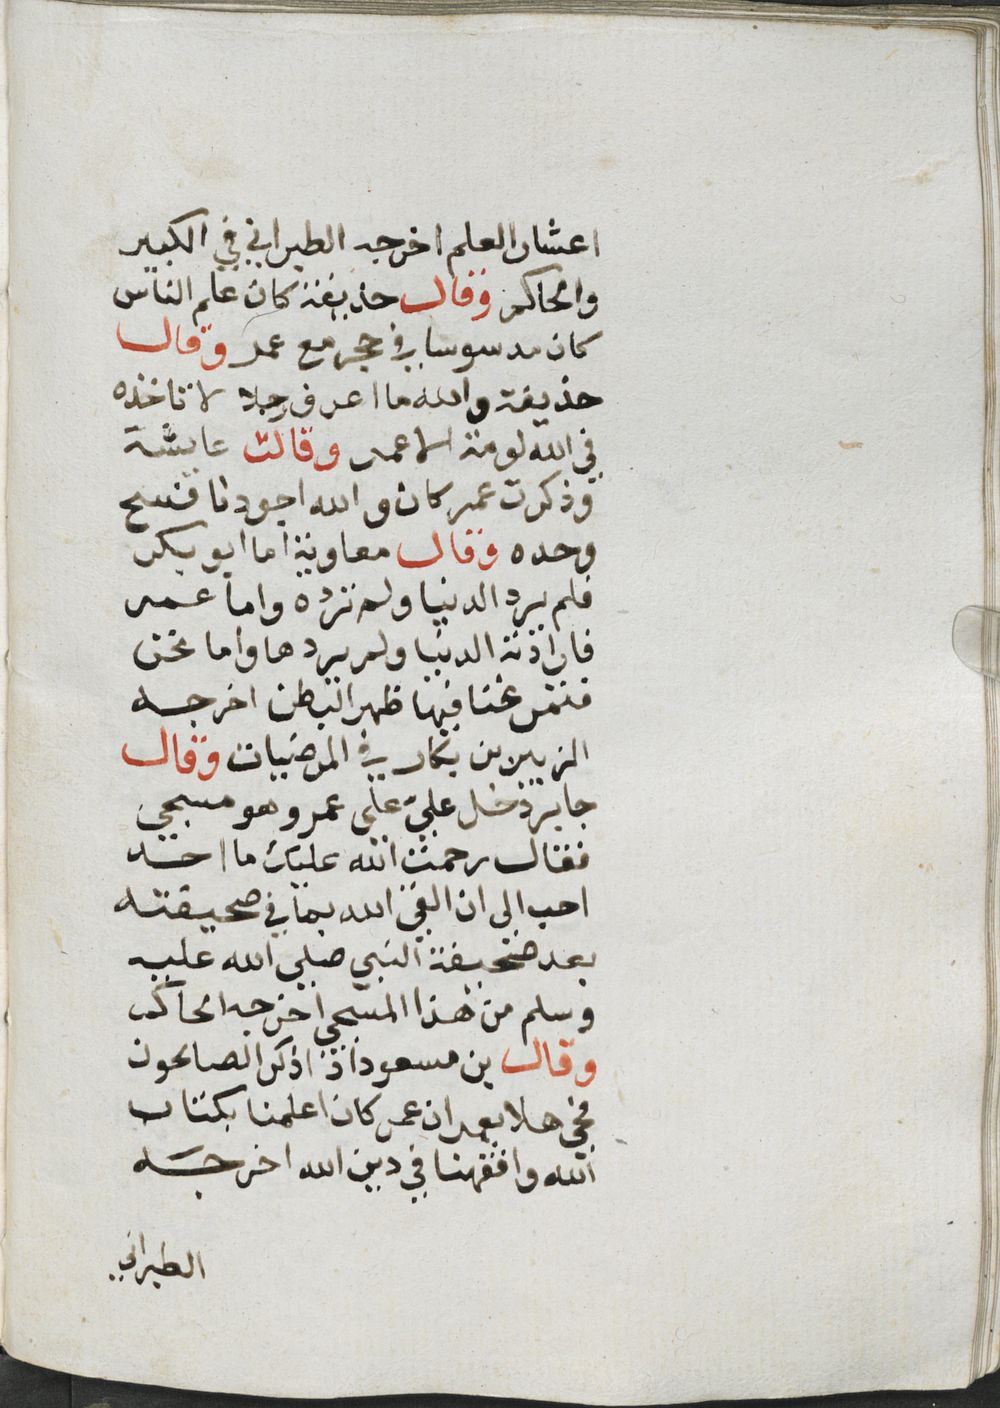 اعشار العلم اخرجه الطبراني في الكبير
والحاكم وقال حذيفة كان علم الناس
كان مدسوسا في حجر مع عمر وقال
حذيفة والله ما اعرف رجلا لا تاخذه
في الله لومة الا عمر وقالت عايشة
وذكرت عمر كان والله اجودنا فسح
وحده وقال معاوية اما ابو بكر
فلم يرد الدنيا ولم ترده واما عمر
فارادته الدنيا ولم يردها واما نحن
فتمرغنا فيها ظهر البطن اخرجه
الزبير بن بكار في المرضيات وقال
جابر دخل علي على عمر وهو مسجي
فقال رحمت الله عليك ما احد
احب الى ان القى الله بما في صحيفته
بعد صحيفة النبي صلى الله عليه
وسلم من هذا المسجي اخرجه الحاكم
وقال بن مسعود اذا ذكر الصالحون
فحي هلا بعمر ان عمر كان اعلمنا بكتاب
الله وافقهنا في دين الله اخرجه
الطبراني